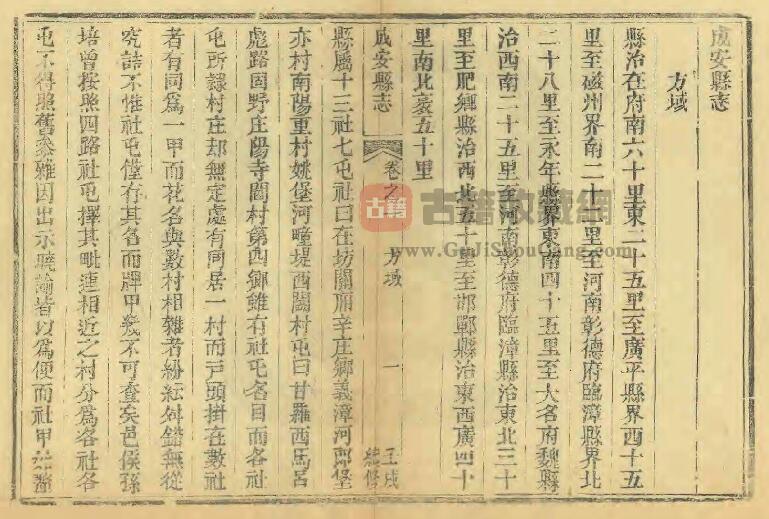 成安縣志
方域
縣治在府南六十里東二十五里至廣平縣界西十五
里至磁州界南二十里至河南彰德府臨漳縣界北
二十八里至永年縣界東南四十五里至大名府魏縣
治西南二十五里至河南彰德府臨漳縣治東北三十
里至肥鄉縣治西北五十里至邯鄲縣治東西廣四十
里南北袤五十里
成安縣志 卷之 方域 一 壬戌 續修
縣屬十三社七屯社曰在坊關廂辛庄鄉義漳河郎堡
亦村南陽重村姚堡河疃堤西閻村屯曰甘羅西馬呂
彪路固野庄陽寺閻村第四鄉雖有社屯名目而各社
屯所隸村庄却無定處有同居一村而戸頭掛在數社
者有同爲一甲而花名與數村相雜者紛紜舛錯無從
究詰不惟社屯僅存其名而牌甲幾不可查矣邑侯孫
培曾按照四路社屯擇其毗連相近之村分爲各社各
屯不得照舊參雜因出示曉諭皆以爲便而社甲
古籍
古籍收藏網
www.GuJiShouCang.com